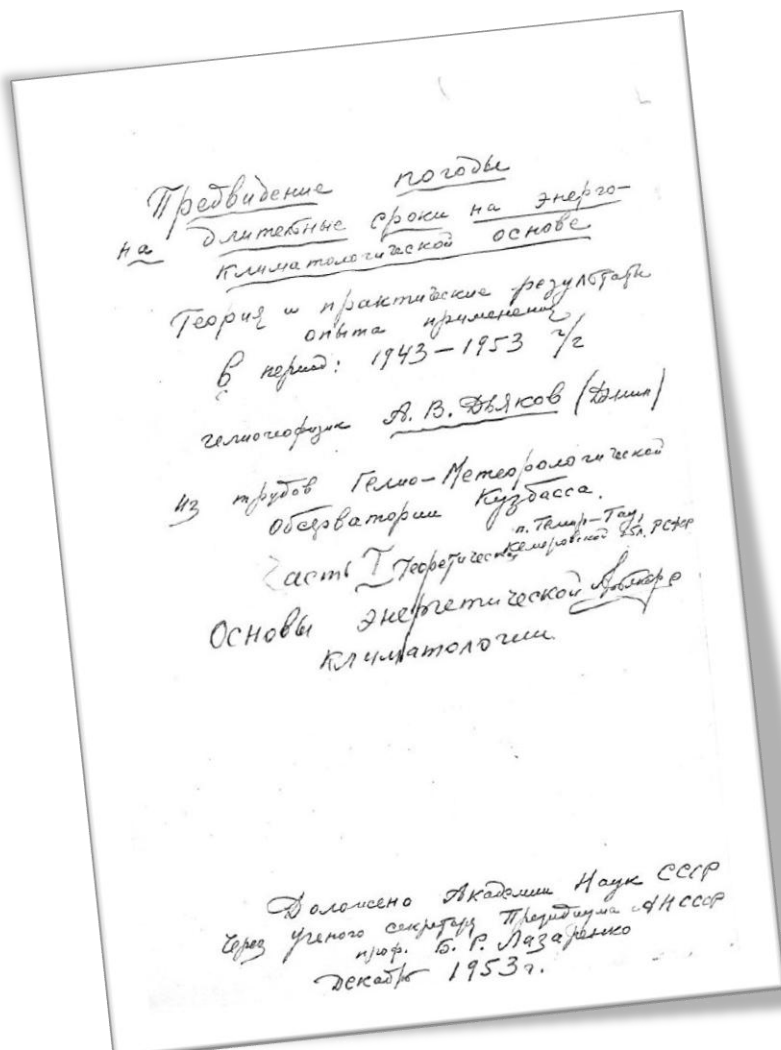 Предвидение погоды
на длительные сроки на энерго-
климатологической основе
Теория и практические результаты
опыта применения
в период: 1943–1953 г/г
гелиогеофизик А. В. Дьяков
из трудов Гелио-Метеорологической
Обсерватории Кузбасса.
п. Темир-Тау,
Кемеровской обл. РСФСР
Часть I Теоретическая
Основы энергетической
климатологии.
Доложено Академии Наук СССР
через ученого секретаря Президиума АН СССР
проф. Б. Р. Лазаренко
Декабрь 1953г.